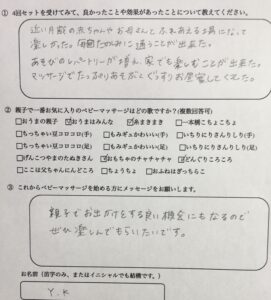 ① 4回セットを受けてみて、良かったことや効果があったことについて教えてください。
近い月齢の赤ちゃんやお母さんとふれあえる場になって
楽しかった。毎回たのしみに通うことが出来た。
あそびのレパートリーが増え、家でも楽しむことが出来た。
マッサージでたっぷりあそんでぐっすりお昼寝してくれた。
② 親子で一番お気に入りのベビーマッサージはどの歌ですか?(複数回答可)
□おうまの親子 ☑おうまはみんな ☑糸まきまき □一本橋こちょこちょ
□ちっちゃい豆コロコロ(手) □もみギュかわいい(手) □いちにりにさんりしし(手)
□ちっちゃい豆コロコロ(足) □もみギュかわいい(足) □いちにりにさんりしし(足)
□げんこつやまのたぬきさん ☑おもちゃのチャチャチャ ☑どんぐりころころ
□ここは父ちゃんにんどころ □ちょうちょ □おふねはぎっちらこ
③ これからベビーマッサージを始める方にメッセージをお願いします。
親子でお出かけをする良い機会にもなるので
ぜひ楽しんでもらいたいです。
お名前(苗字のみ、またはイニシャルでも結構です。)
Y.K